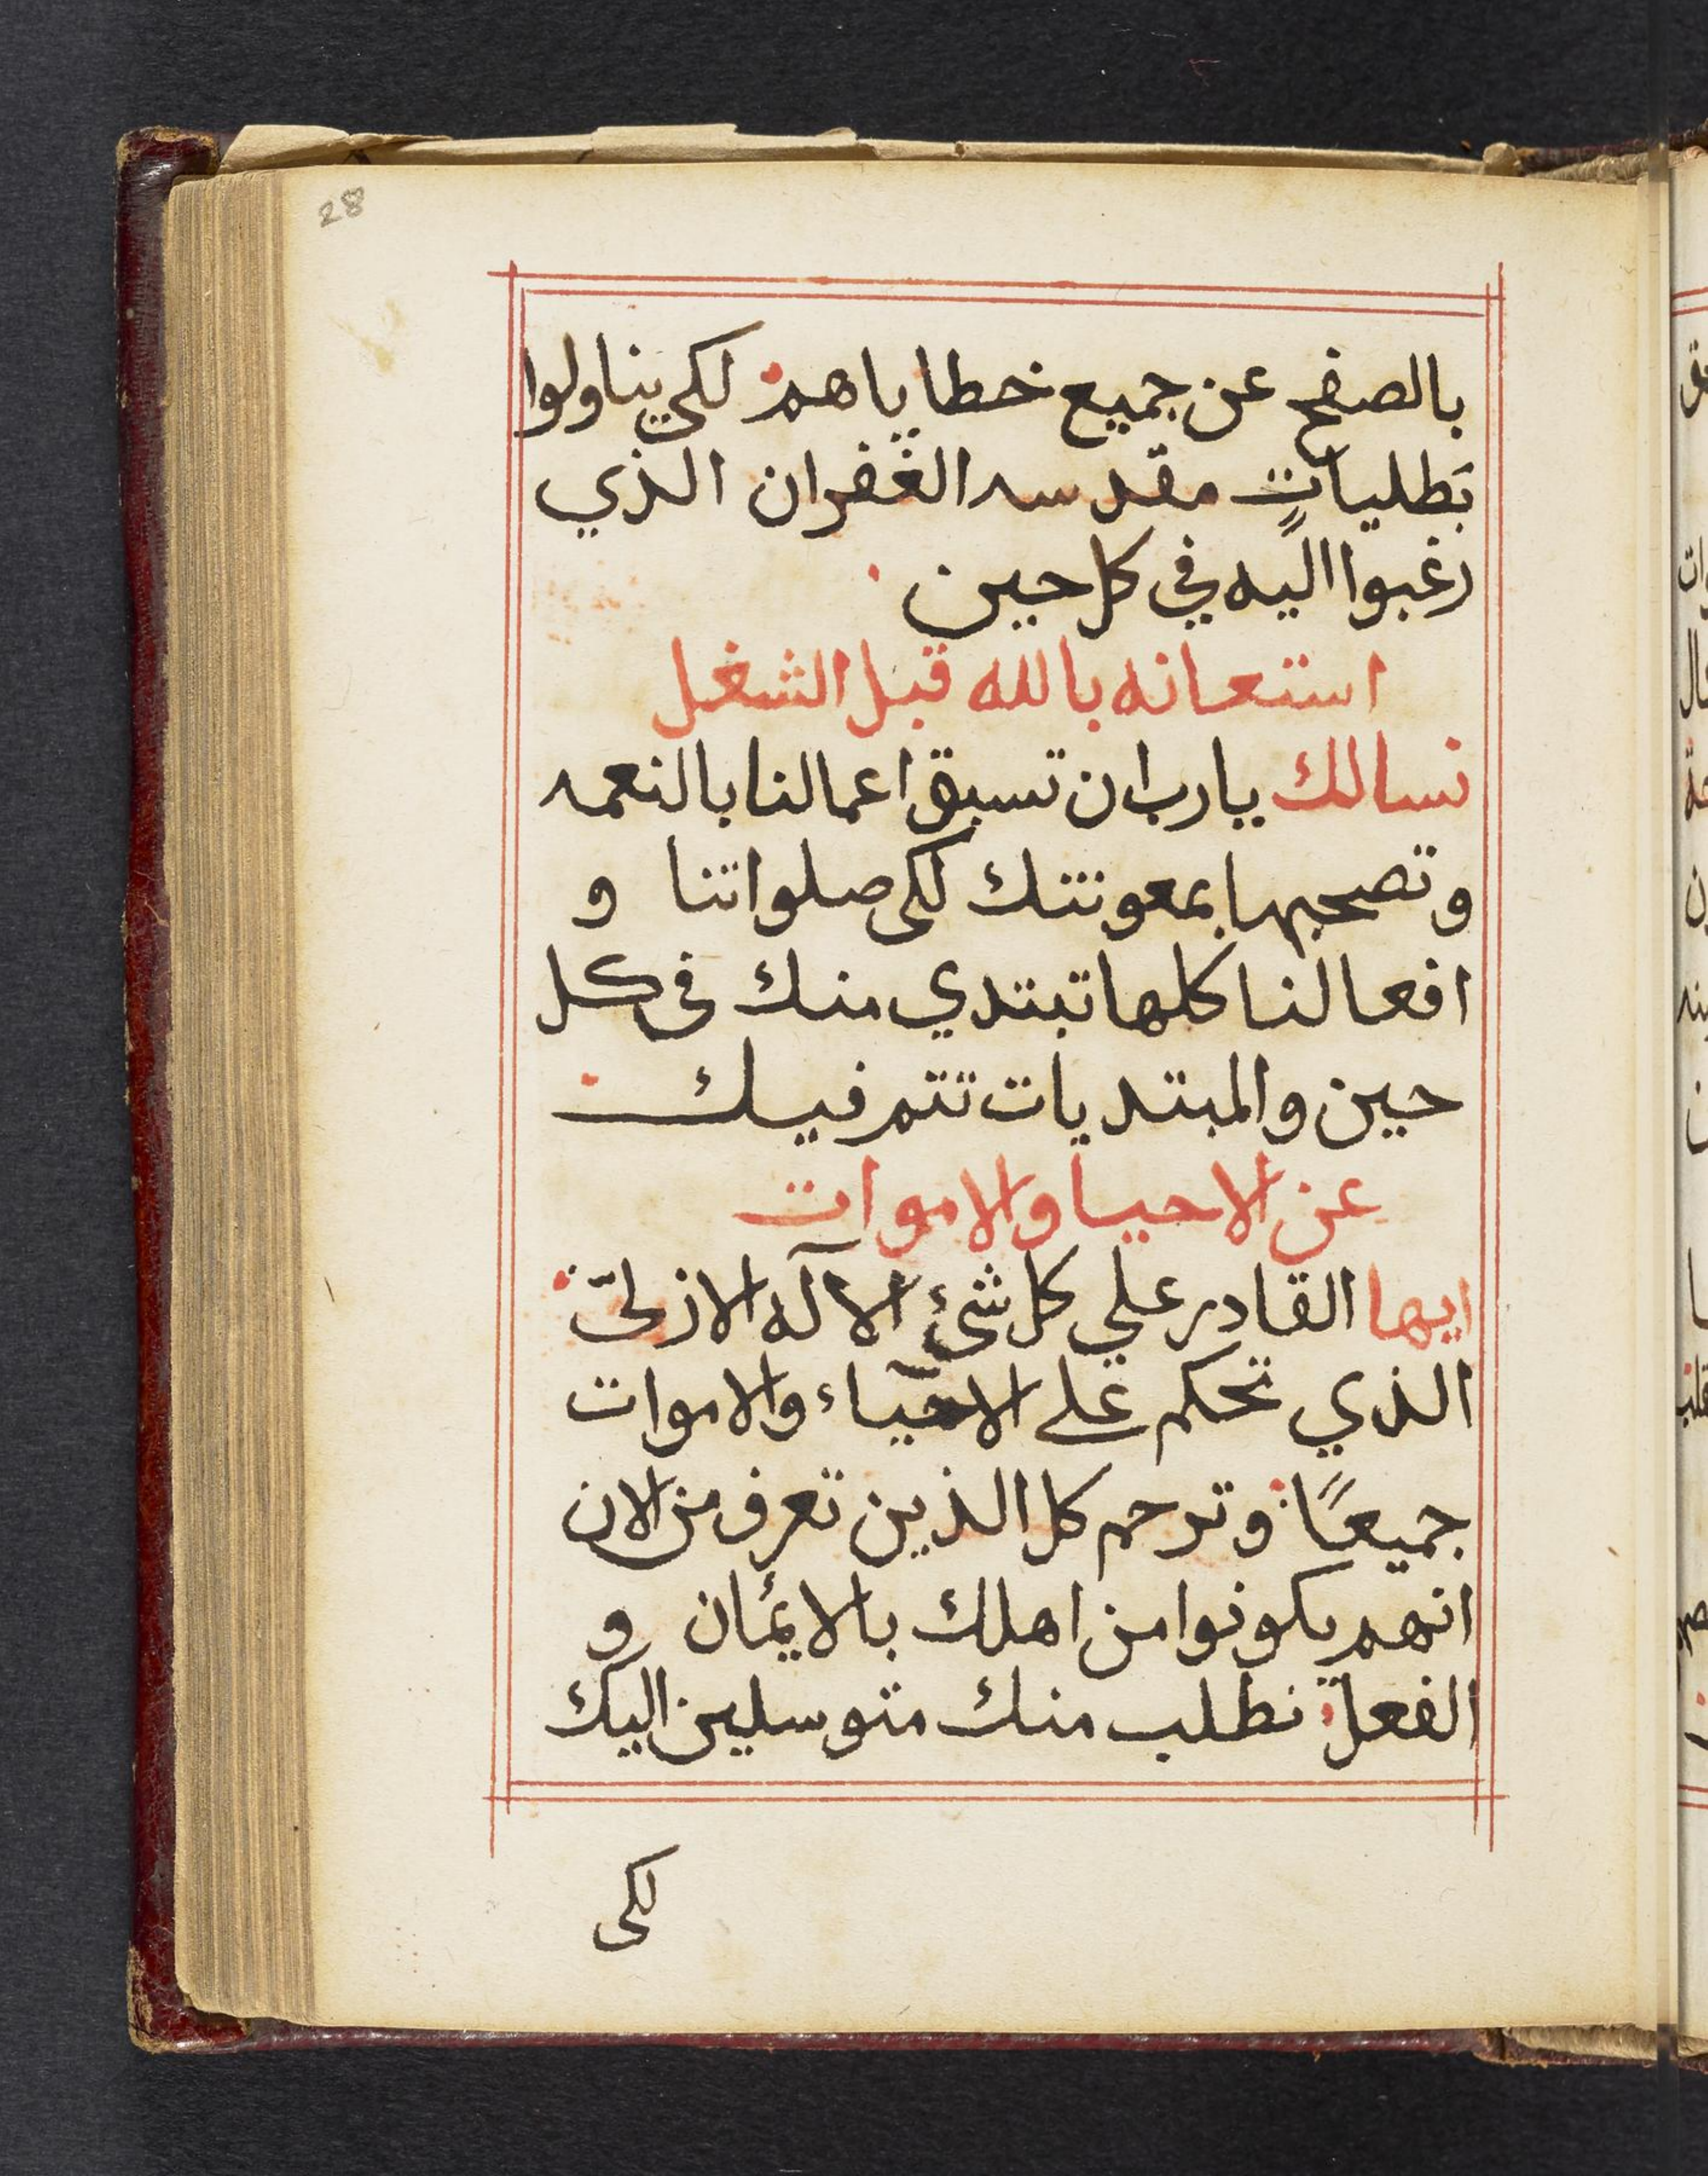 28
بالصفح عن جميع خطاياهم لكي يناولوا
بَطلياتٍ مقدسه الغفران الذي
رغبوا اليه في كل حين
استعانه بالله قبل الشغل
نسالك يارب ان تسبق اعمالنا بالنعمه
وتصحبها بمعونتك لكى صلواتنا و
افعالنا كلها تبتدي منك فى كل
حين والمبتديات تتم فيك
عن الاحيا والاموات
ايها القادر علي كل شئ الآله الازلىّ
الذي تحكم على الاحيآء والاموات
جميعًا وترحم كل الذين تعرف من الان
انهم يكونوا من اهلك بالائمان و
الفعل نطلب منك متوسلين اليك
لكى